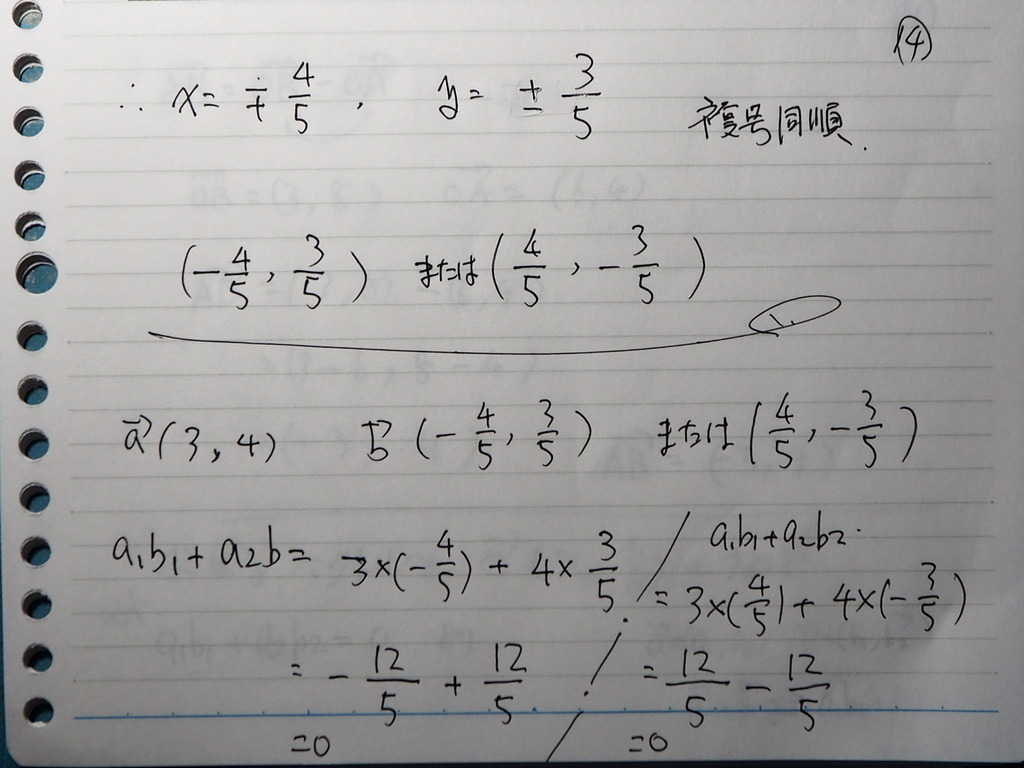 ⑭
∴ x= ∓ 4/5 , y= ± 3/5 複号同順.
(-4/5, 3/5) または (4/5, -3/5)
a⃗ (3, 4) b⃗ (-4/5, 3/5) または (4/5, -3/5)
a₁b₁ + a₂b = 3×(-4/5) + 4× 3/5
= -12/5 + 12/5
=0
a₁b₁+a₂b₂
= 3×(4/5) + 4×(-3/5)
= 12/5 - 12/5
=0